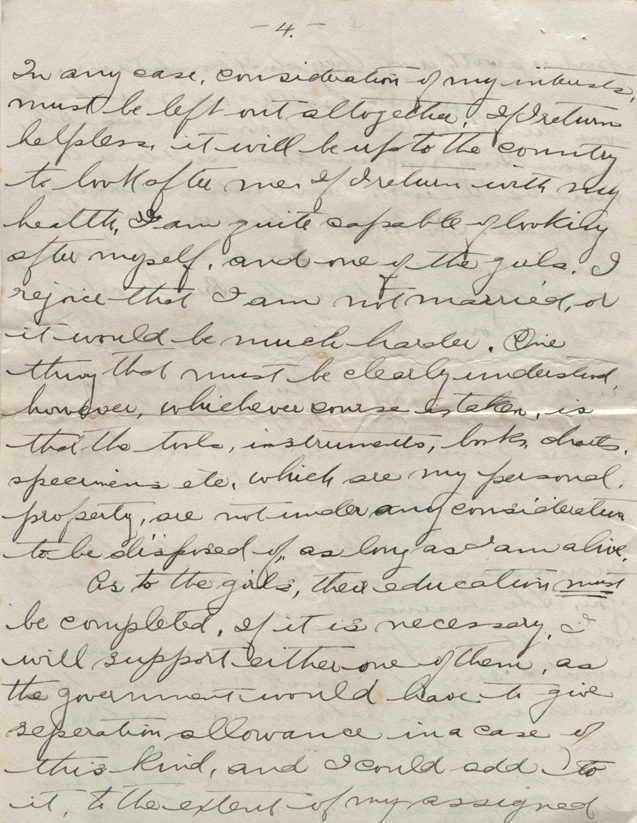 - 4. -
In any case, consideration of my interests,
must be left out altogether. If I return
helpless, it will be up to the country
to look after me. If I return with my
health, I am quite capable of looking
after myself, and one of the girls. I
rejoice that I am not married, or
it would be much harder. One
thing that must be clearly understood,
however, whichever course is taken, is
that the tools, instruments, books, charts,
specimens etc, which are my personal
property, are not under any consideration
to be disposed of, as long as I am alive.
As to the girls, their education must
be completed, if it is necessary, I
will support either one of them, as
the government would have to give
seperation allowance in a case of
this kind, and I could add to
it, to the extent of my assigned